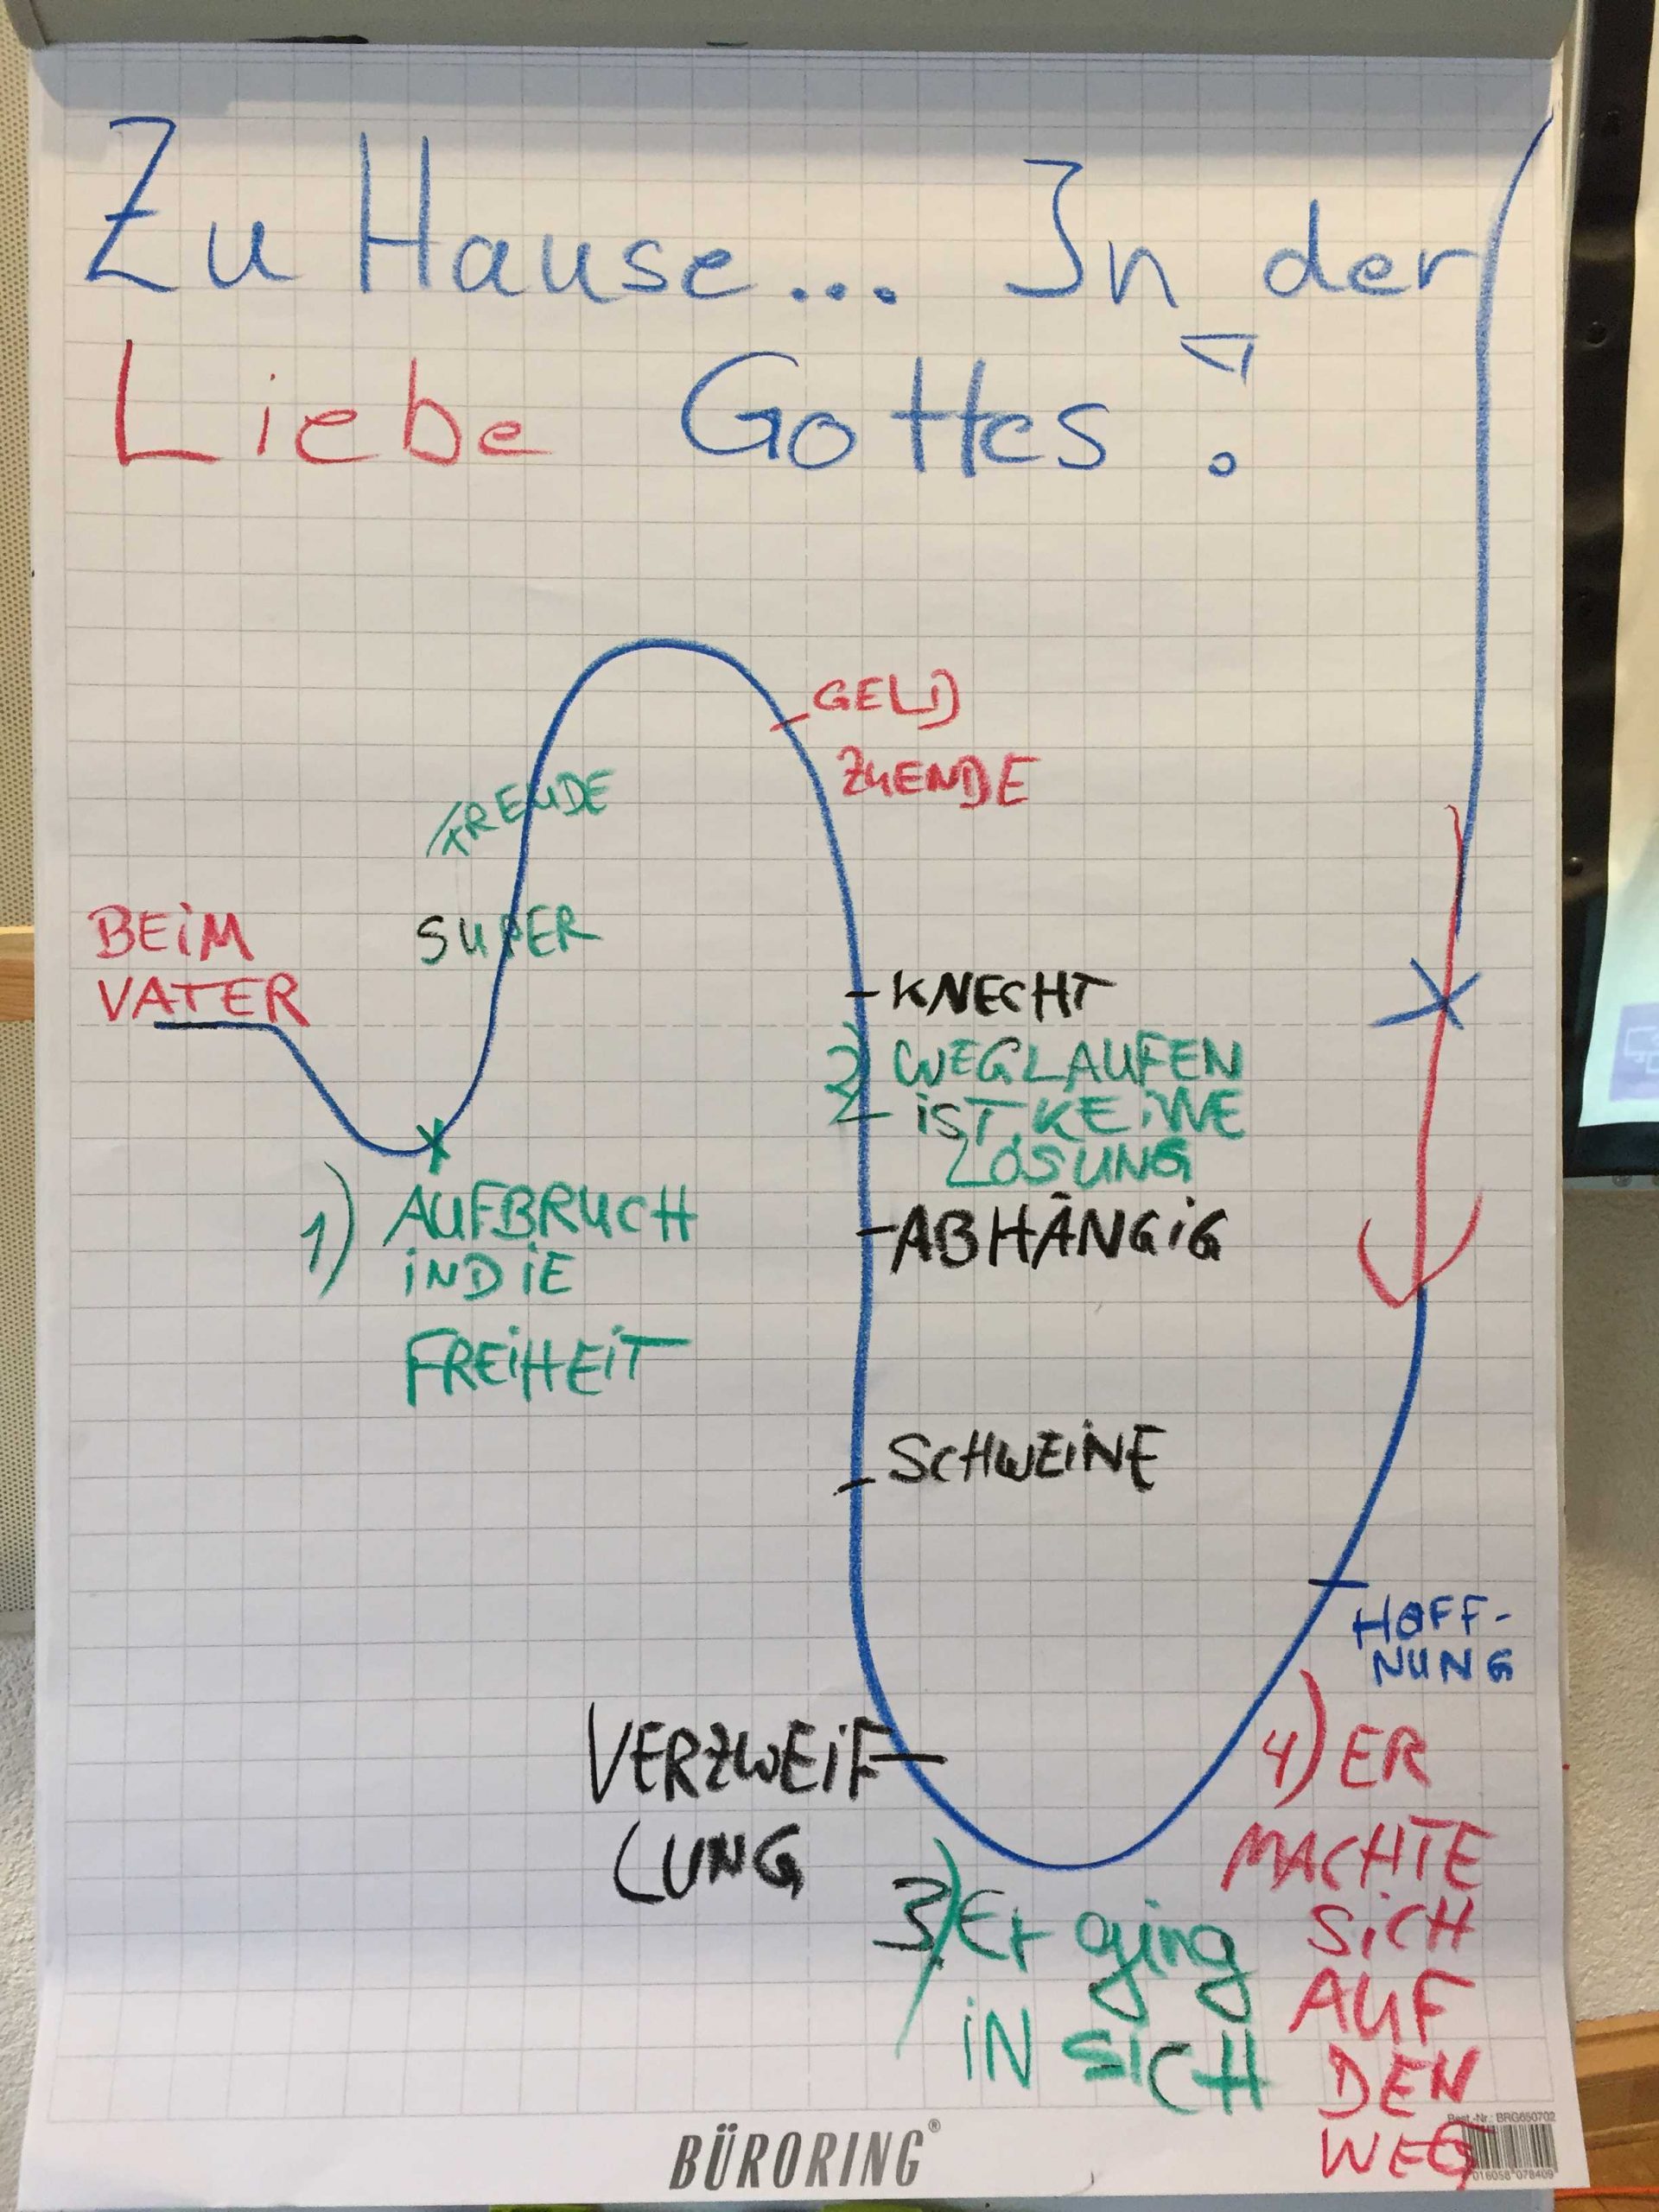 Zu Hause... In der
Liebe Gottes!
GELD
ZUENDE
FREUDE
SUPER
BEIM
VATER
KNECHT
2) WEGLAUFEN
IST KEINE
LÖSUNG
1) AUFBRUCH
IN DIE
FREIHEIT
ABHÄNGIG
SCHWEINE
HOFF-
NUNG
VERZWEIF
LUNG
3) Er ging
IN SICH
4) ER
MACHTE
SICH
AUF
DEN
WEG
BÜRORING®
Best.-Nr.: BRG650702
016058 078409